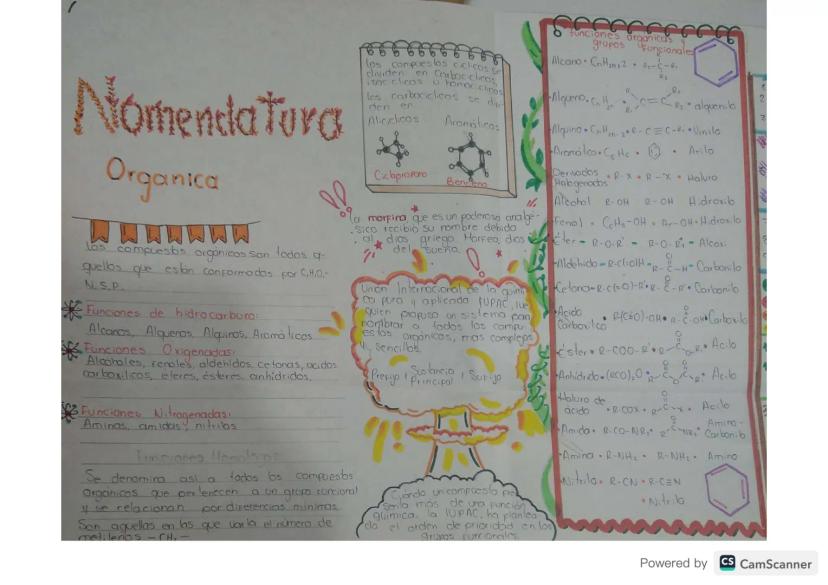 Nomenclatura
Organica
Los compuestos orgánicos son todos a-
quellos que están conformados por C,H,O,-
N,S,P.
Funciones de hidrocarburo:
Alcanos, Alquenos, Alquinos, Aromáticos
Funciones Oxigenadas:
Alcoholes, fenoles, aldehidos, cetonas, acidos
carboxilicos, eteres, ésteres, anhidridos.
Funciones Nitrogenadas:
Aminas, amidas, nitrilos
Se denomina asi a todos los compuestos
organicos que pertenecen a un grupo funcional
y se relacionan por diferencias minimas.
Son aquellas en las que varia el número de
metilenos -CH2-
los compuestos ciclicos se
dividen en Carbociclicos,
isociclicos u homociclicos
los carbociclicos se divi-
den en
Aliciclicos Aromáticos
Ciclopropano
Benceno
la morfina, que es un poderoso analgé-
sico recibió su nombre debido
al dios griego Morfeo, dios
del sueña.
Union Internacional de la quimi
ca pura y aplicada IUPAC, fue
quien propuso un sistema para
nombrar a todos los compu-
estos orgánicos, mas complejos
y sencillos.
Prefijo / Sustancia Principal / Sufijo
Cuando un compuesto pre
senta mas de una función
química, la IUPAC, ha plantea
do el orden de prioridad en los
grupos funcionales
funciones organicas y
grupos funcionales
Alcano • CnH2n+2
Alqueno • C=C • alquenilo
Alquino • CnH2n-2 • R-C≡C-R1 • Vinilo
Aromático • C6H6 • Arilo
Derivados Halogenados • R-X • R-X • Haluro
Alcohol R-OH R-OH Hidroxilo
Fenol • C6H5-OH • Ar-OH • Hidroxilo
Éter - R-O-R' - R-O-R1 - Alcoxi
Aldehido • R-C(=O)H • R-C-H • Carbonilo
Cetona • R-C(=O)-R' • R-C-R' • Carbonilo
Acido Carboxilico • R(C=O)-OH • R-C-OH • Carboxilo
Éster • R-COO-R' • Acilo
Anhidrido • (RCO)2O • Acilo
Haluro de ácido • R-COX • R-C-X • Acilo
Amida • R-CO-NR2 • Amino-Carbonilo
Amina • R-NH2 • R-NH2 • Amino
Nitrilo • R-CN • R-C≡N
• Nitrilo
Powered by CS CamScanner